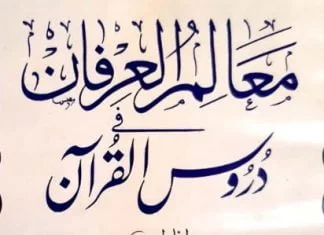 مَعَالِمُ الْعِرْفَان
فی
دُرُوسِ الْقُرْآن